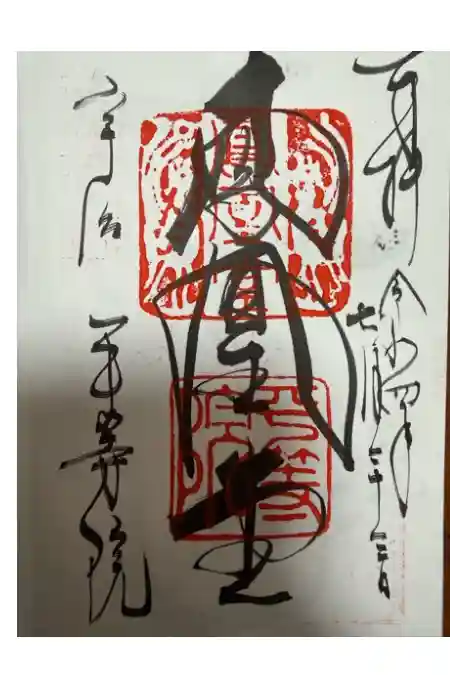 奉拝
令和四年
七月二十三日
鳳凰堂
宇治
平等院